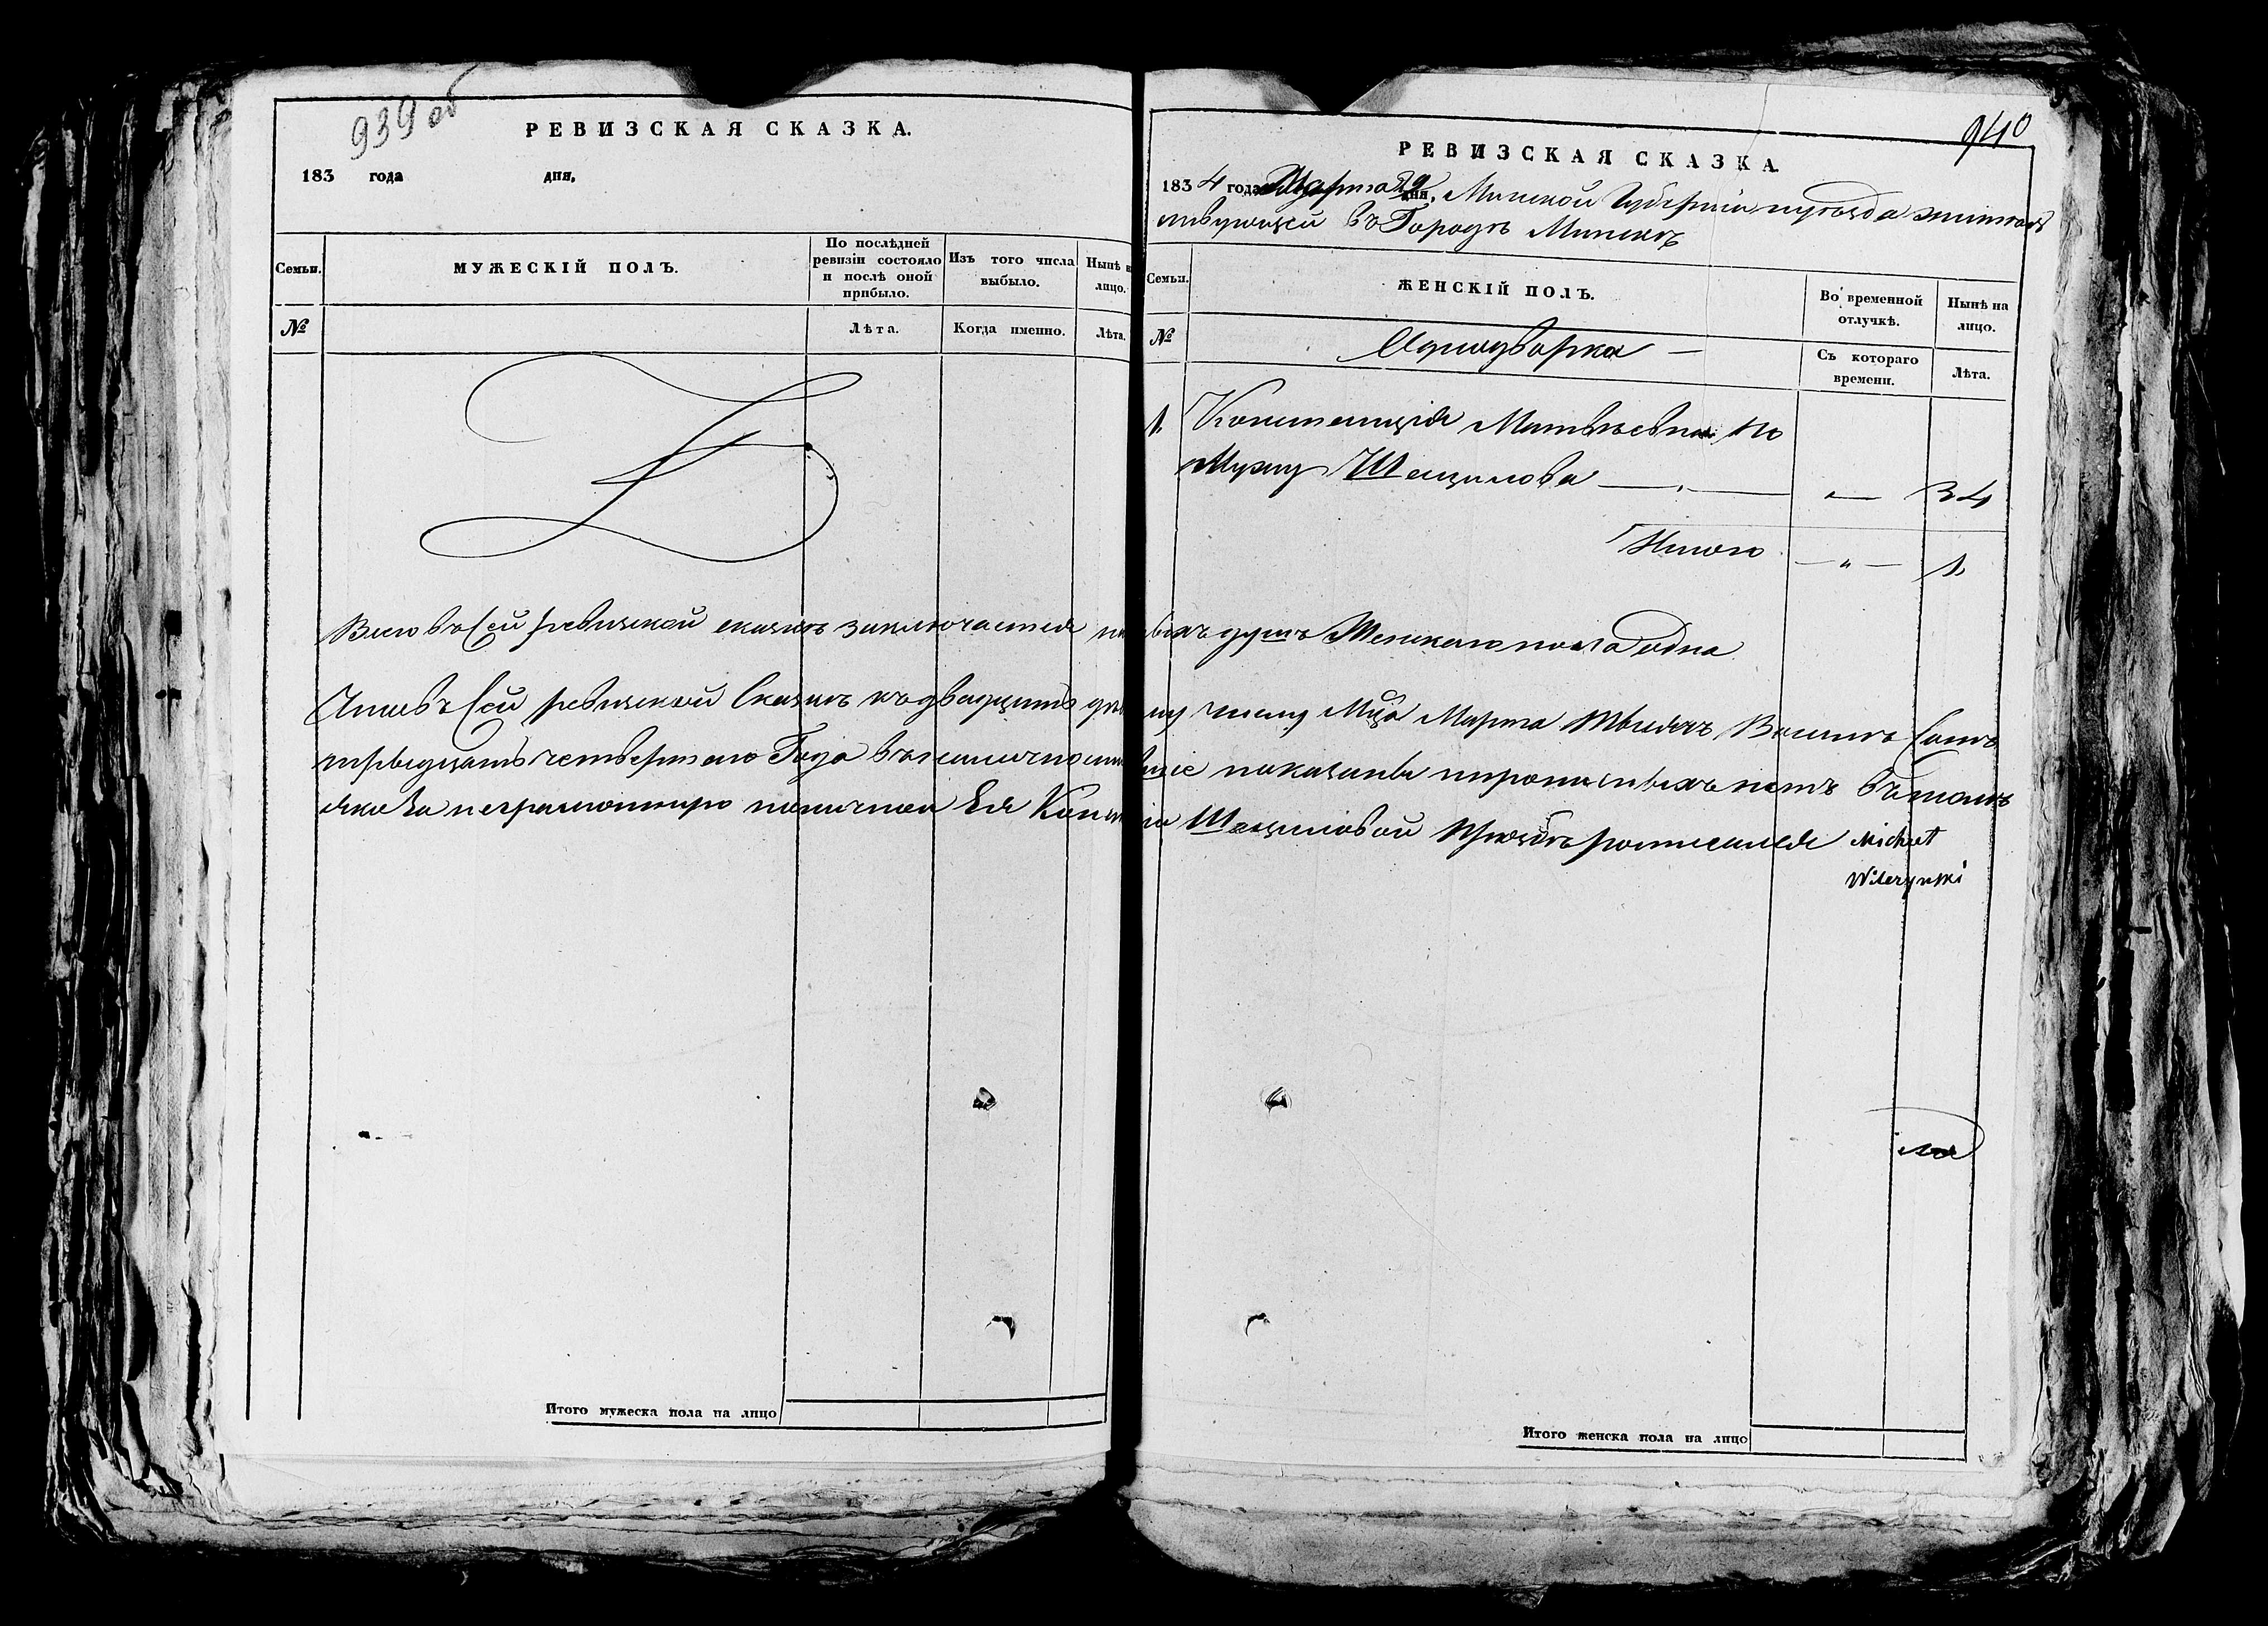 939 об
РЕВИЗСКАЯ СКАЗКА.
183 года дня,
Семьи.
МУЖЕСКІЙ ПОЛЪ.
По послѣдней
ревизіи состояло
и послѣ оной
прибыло.
Изъ того числа
выбыло.
Нынѣ н
лицо.
№
Лѣта.
Когда именно.
Лѣта.
Всего въ сей ревизской сказкѣ заключается на
Что въ сей ревизской сказкѣ къ двадцать
тридцать четвертаго Года
неграмотную
Итого мужеска пола на лицо
940
РЕВИЗСКАЯ СКАЗКА
1834 года Марта 29 дня, Минской Губерніи и уѣзда жител
ствующей въ Городѣ Минскѣ
Семьи.
ЖЕНСКІЙ ПОЛЪ.
Во временной
отлучкѣ.
Нынѣ на
лицо.
№
Однодворка —
Съ котораго
времени.
Лѣта.
1. Констанція Матвѣевна по
Мужу Шацилова — „ — 34
Итого — „ — 1.
душъ Женскаго пола одна
му числу Мца Марта Тысяча Восимь Сотъ
показаны и прописныхъ нетъ въ томъ
Шациловой росписался Michał
Wilczynski
Итого женска пола на лицо